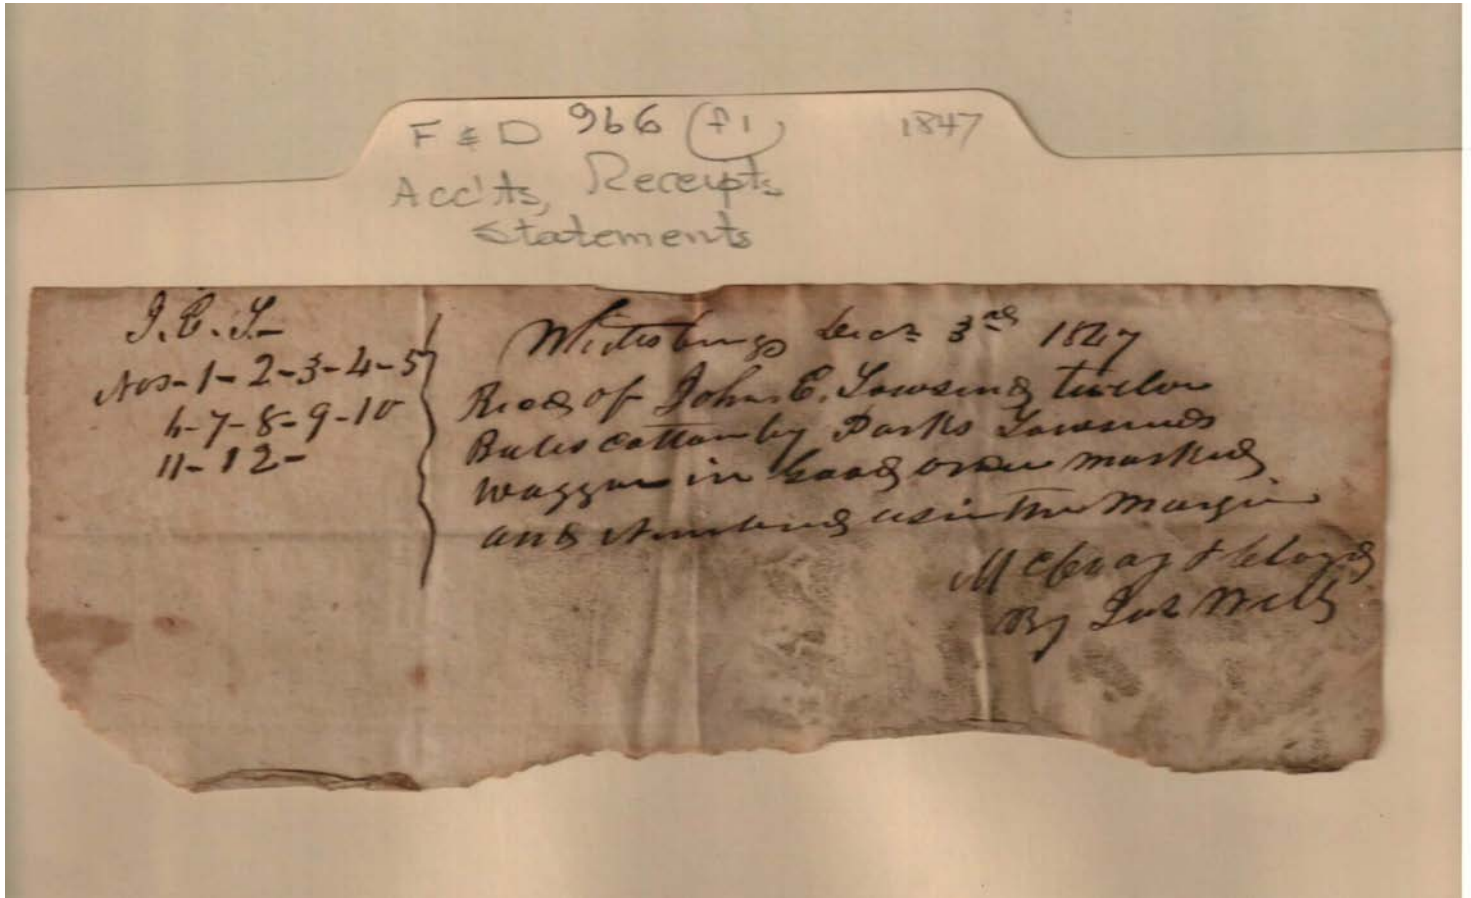 F & D 966 (f1) 1847
Acc'ts, Receipts
Statements
J. E. T.
Nos - 1 - 2 - 3 - 4 - 5
6 - 7 - 8 - 9 - 10
11 - 12 -
Whitesburg Decr 3rd 1847
Recd of John E. Townsend twelve
Bales cotton by Parks Townsends
waggon in Good order marked
and Numbered as in the Margin
By Jas Webb